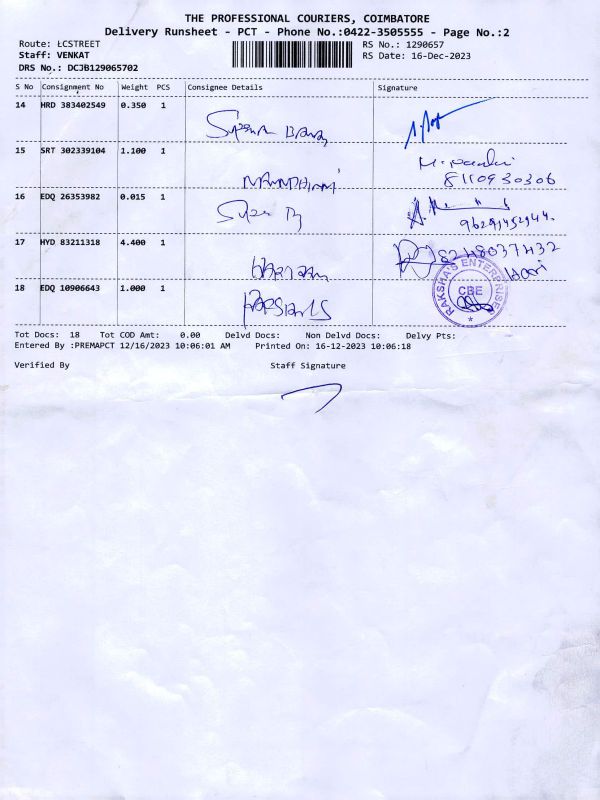 THE PROFESSIONAL COURIERS, COIMBATORE
Delivery Runsheet - PCT - Phone No.:0422-3505555 - Page No.:2
Route: LCSTREET
RS No.: 1290657
Staff: VENKAT
RS Date: 16-Dec-2023
DRS No.: DCJB129065702
S No Consignment No Weight PCS Consignee Details Signature
14 HRD 383402549 0.350 1
15 SRT 302339104 1.100 1
8110930306
16 EDQ 26353982 0.015 1
17 HYD 83211318 4.400 1
8248037432
Hari
18 EDQ 10906643 1.000 1
RAKSHA'S ENTERPRISES
CBE
Tot Docs: 18 Tot COD Amt: 0.00 Delvd Docs: Non Delvd Docs: Delvy Pts:
Entered By :PREMAPCT 12/16/2023 10:06:01 AM Printed On: 16-12-2023 10:06:18
Verified By Staff Signature